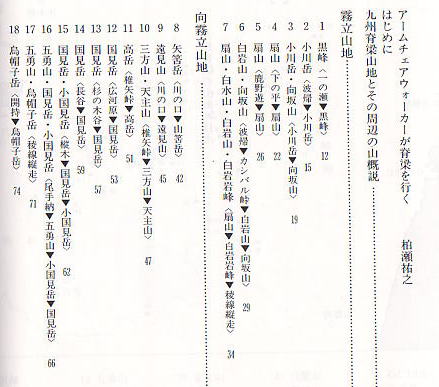 アームチェアウォーカーが脊梁を行く 柏瀬祐之
はじめに
九州脊梁山地とその周辺の山概説
霧立山地
1 黒峰〈一の瀬▼黒峰〉 12
2 小川岳〈波帰▼小川岳〉 15
3 小川岳・向坂山〈小川岳▼向坂山〉 19
4 扇山〈下の平▼扇山〉 22
5 扇山〈鹿野遊▼扇山〉 26
6 白岩山・向坂山〈波帰▼カシバル峠▼白岩山▼向坂山〉 29
7 扇山・白水山・白岩山・白岩岩峰〈扇山▼白岩岩峰▼稜線縦走〉 34
向霧立山地
8 矢筈岳〈川の口▼矢筈岳〉 42
9 遠見山〈川の口▼遠見山〉 45
10 三方山・天主山〈椎矢峠▼三方山▼天主山〉 47
11 高岳〈椎矢峠▼高岳〉 51
12 国見岳〈広河原▼国見岳〉 53
13 国見岳〈杉の木谷▼国見岳〉 57
14 国見岳〈長谷▼国見岳〉 59
15 国見岳・小国見岳〈樅木▼国見岳▼小国見岳〉 62
16 五勇山・国見岳・小国見岳〈尾手納▼五勇山▼小国見岳▼国見岳〉 66
17 五勇山・烏帽子岳〈稜線縦走〉 71
18 烏帽子岳〈開持▼烏帽子岳〉 74